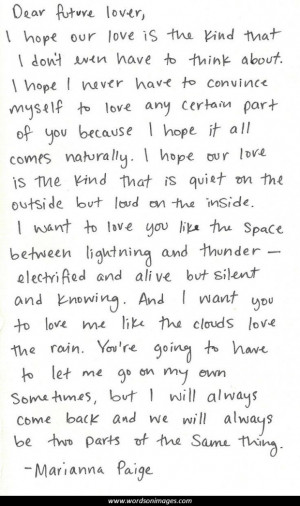 Dear future lover,
I hope our love is the kind that
I don't even have to think about.
I hope I never have to convince
myself to love any certain part
of you because I hope it all
comes naturally. I hope our love
is the kind that is quiet on the
outside but loud on the inside.
I want to love you like the space
between lightning and thunder —
electrified and alive but silent
and knowing. And I want you
to love me like the clouds love
the rain. You're going to have
to let me go on my own
sometimes, but I will always
come back and we will always
be two parts of the same thing.
-Marianna Paige
www.wordsonimages.com